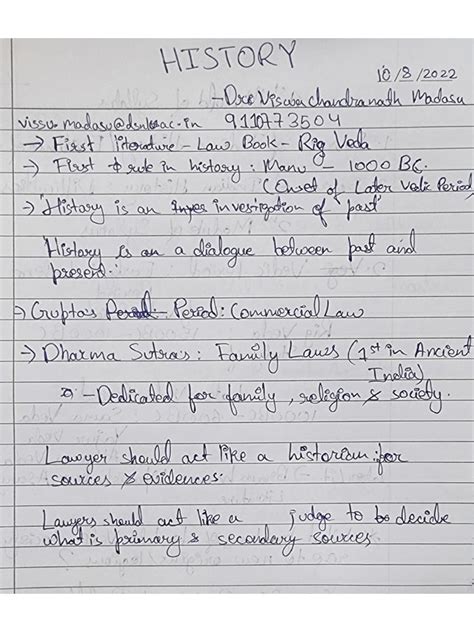 HISTORY
10/8/2022
- Dr. Viswa chandranath Madasu
9110773504
→ First literature - Law Book - Rig Veda
→ First rule in history : Manu - 1000 BC.
(Onset of Later Vedic Period)
→ 'History is an investigation of 'past'
History is an a dialogue between past and
present.
→ Gupta's Period : Commercial Law
→ Dharma Sutra's : Family Laws (1st in Ancient
India)
- Dedicated for family, religion & society.
Lawyer should act like a historian for
sources & evidences.
Lawyers should act like a judge to be decide
what is primary & secondary sources.